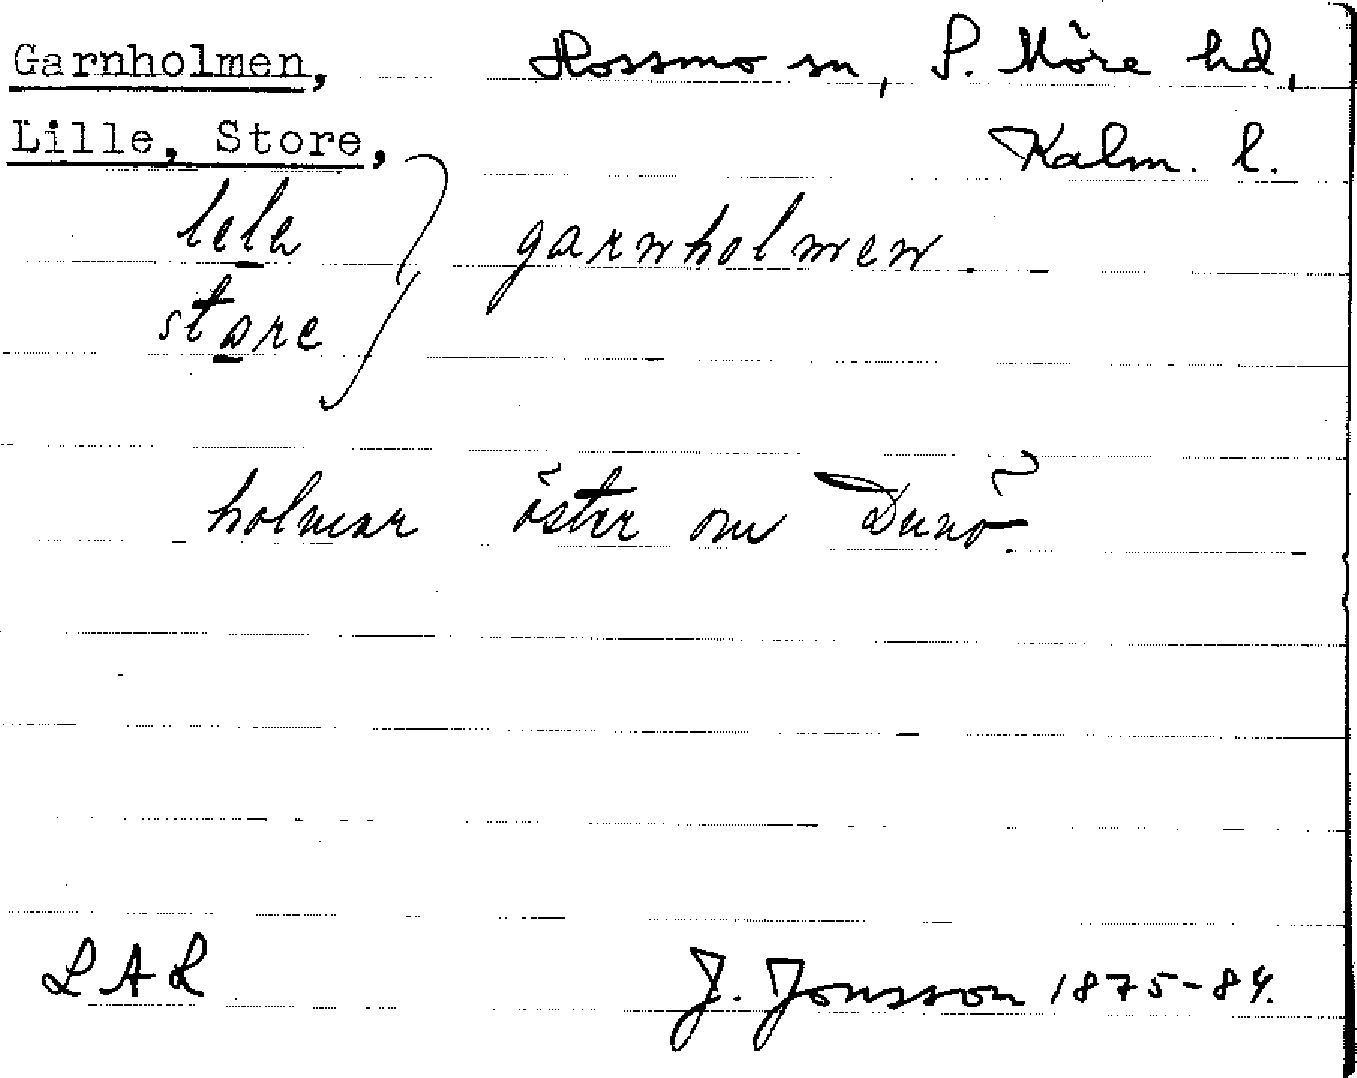 Garnholmen, Hossmo sn, S. Möre hd,
Lille, Store, Kalm. l.
lele garnholmen.
store
holmar öster om Dunö.
LAL J. Jonsson 1875-84.